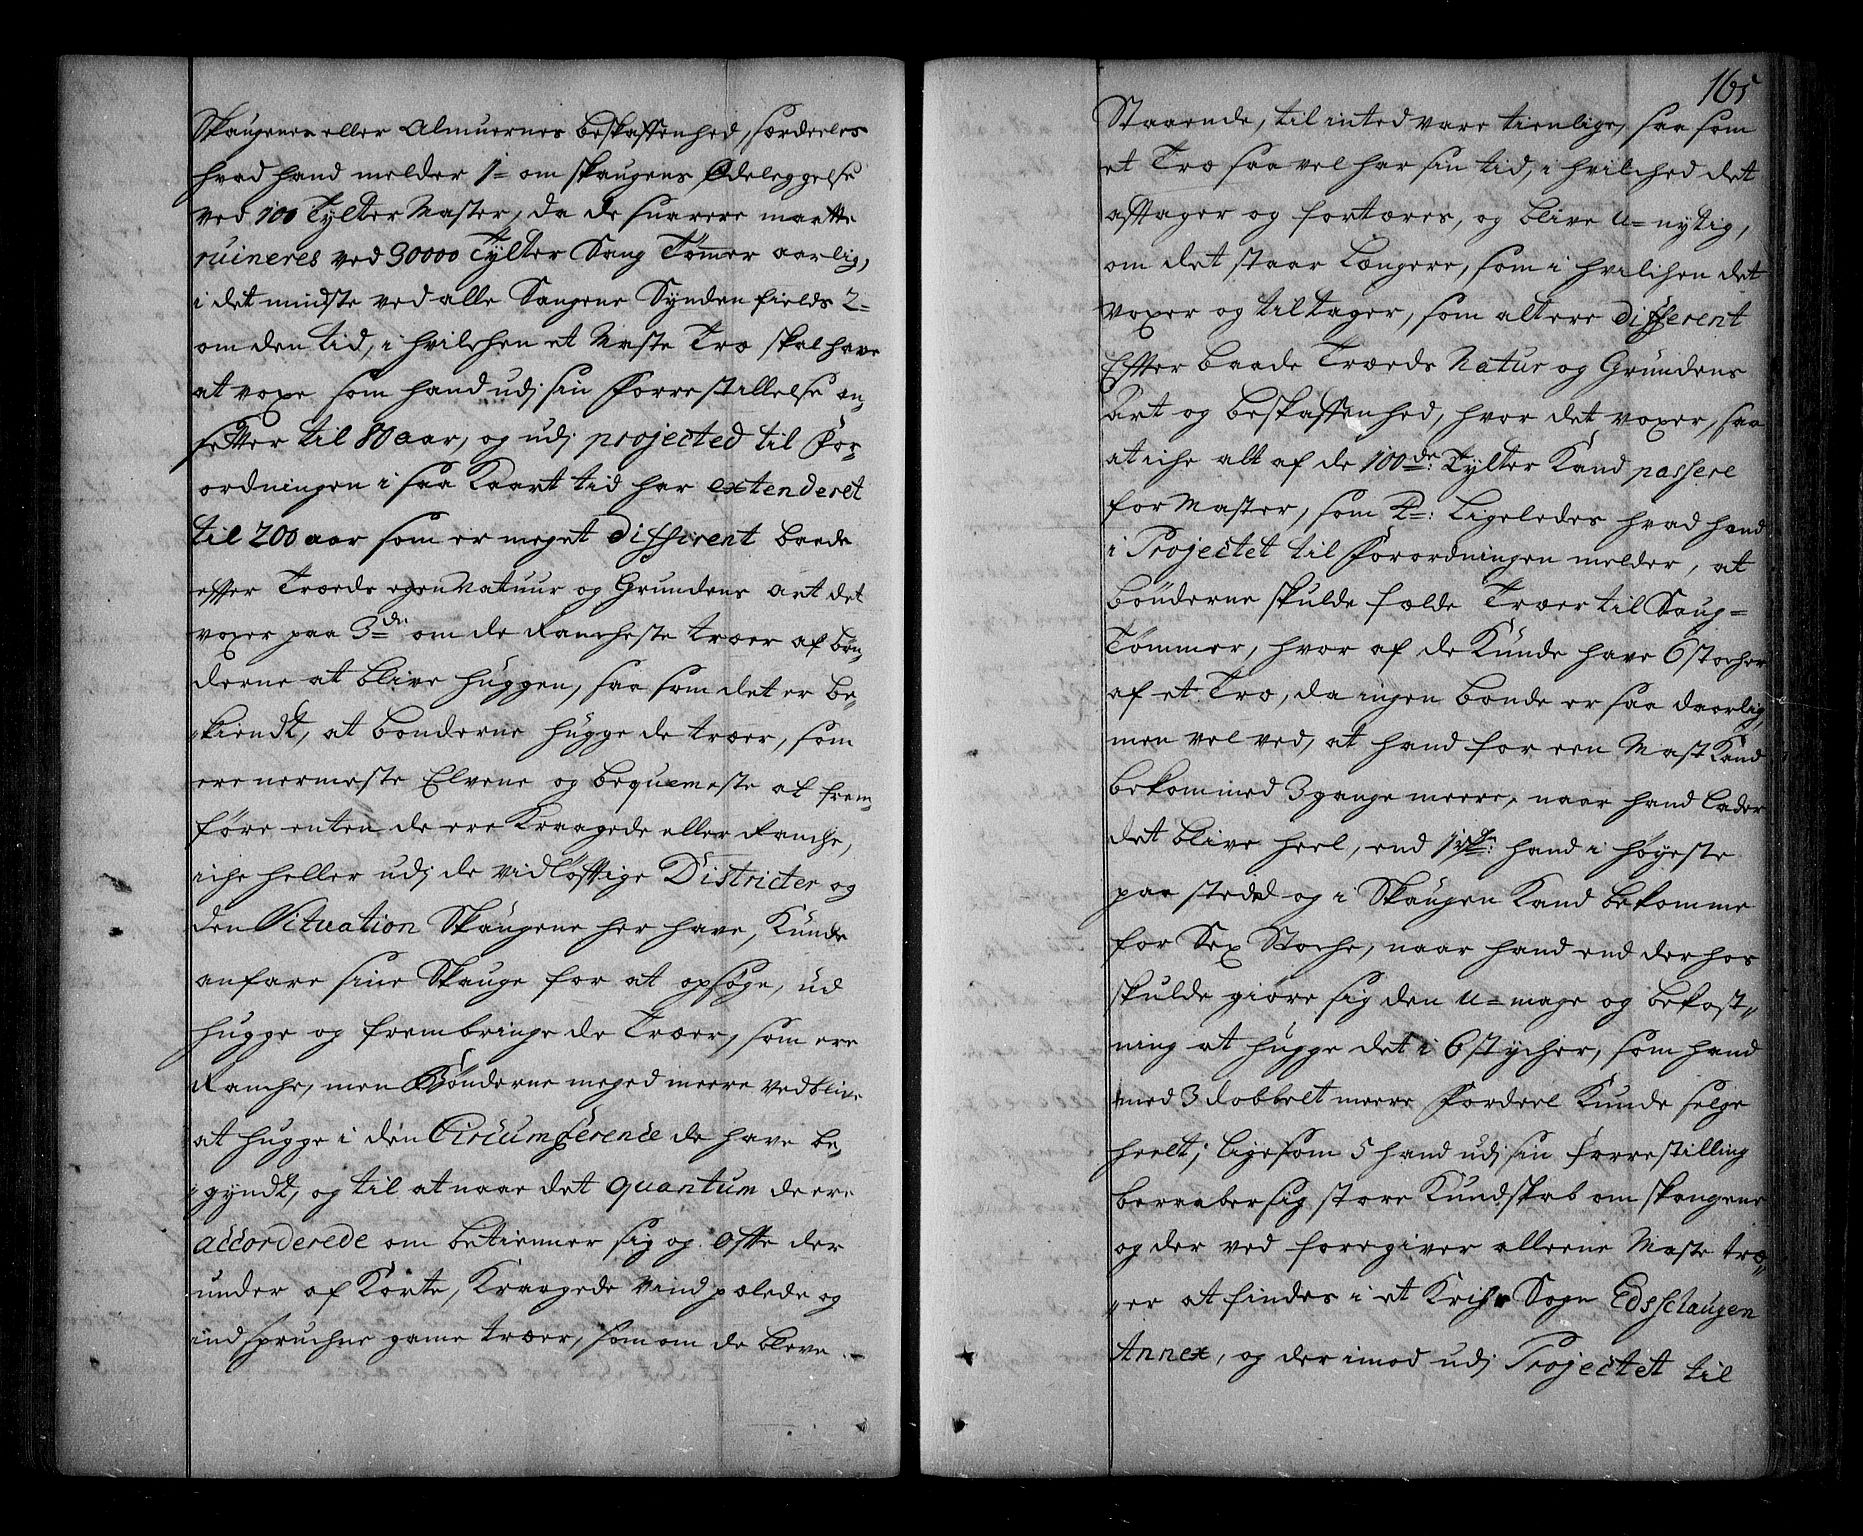 Skaugenes eller Almuernes beskaffenhed, særdeeles
hvad hand melder 1= om skaugens Ødeleggelse
ved 100 Tylter Master, da de snarere maatte
ruineres ved 30000 Tylter Saug Tømer aarlig,
i det mindste ved alle Saugene Synden fields 2=
om den tid, i hvilchen et Maste Træ skal have
at voxe som hand udj sin Forrestillelse an„
setter til 80 aar, og udj projected til For„
ordningen i saa Kaart tid har extenderet
til 200 aar som er meget different baade
effter Træeds egen Natuur og Grundens art det
voxer paa 3de om de Ranckeste træer af bøn„
derne at blive huggen, saa som det er be„
„kiendt, at bønderne hugge de træer, som
ere nermeste Elvene og bequemeste at frem„
føre enten de ere Kraagede eller Ranche,
iche heller udj de vidløfftige Districter og
den Situation Skaugene her have, Kunde
anfare sine Skauge for at opsøge, ud
hugge og frembringe de Træer, som ere
Ranche, men Bønderne meged meere vedblive
at hugge i den Circumference de have be„
„gyndt, og til at naae det quantum de ere
accorderede om betienner sig og offte der
under af Korte, Kraagede vind pælede og
indspruchne game træer, som om de bleve
165
Staaende, til inted vare tienlige, saa som
et Træ saa vel har sin tid, i hvilched det
afftager og fortæres, og blive u=nytig,
om det staar Længere, som i hvilchen det
voxer og tiltager, som alt ere different
Effter baade Træeds Natur og Grundens
Art og beskaffenhed, hvor det voxer, saa
at iche alt af de 100de: Tylter Kand passere
for Master, som 4=: Ligeledes hvad hand
i Projectet til Forordningen melder, at
bønderne skulde fælde Træer til Saug=
Tømmer, hvor af de Kunde have 6 stocher
af et Træ, da ingen bonde er saa daarlig,
men vel ved, at hand for een Mast Kand
bekommed 3 gange meere, naar hand Lader
det blive heel, end hand i høyeste
paa stedet og i Skaugen Kand bekomme
for Sex Stoche, naar hand end der hos
skulde giøre sig den u=mage og bekost„
ning at hugge det i 6 stycher, som hand
med 3 dobbelt meere Fordeel Kunde selge
heelt; Ligesom 5 hand udj sin forrestilling
beraaber sig store Kundskab om skaugene
og der ved foregiver alleene Maste træ„
„er at findes i et Sogn Edsschaugen
Annex, og der imod udj Projectet til